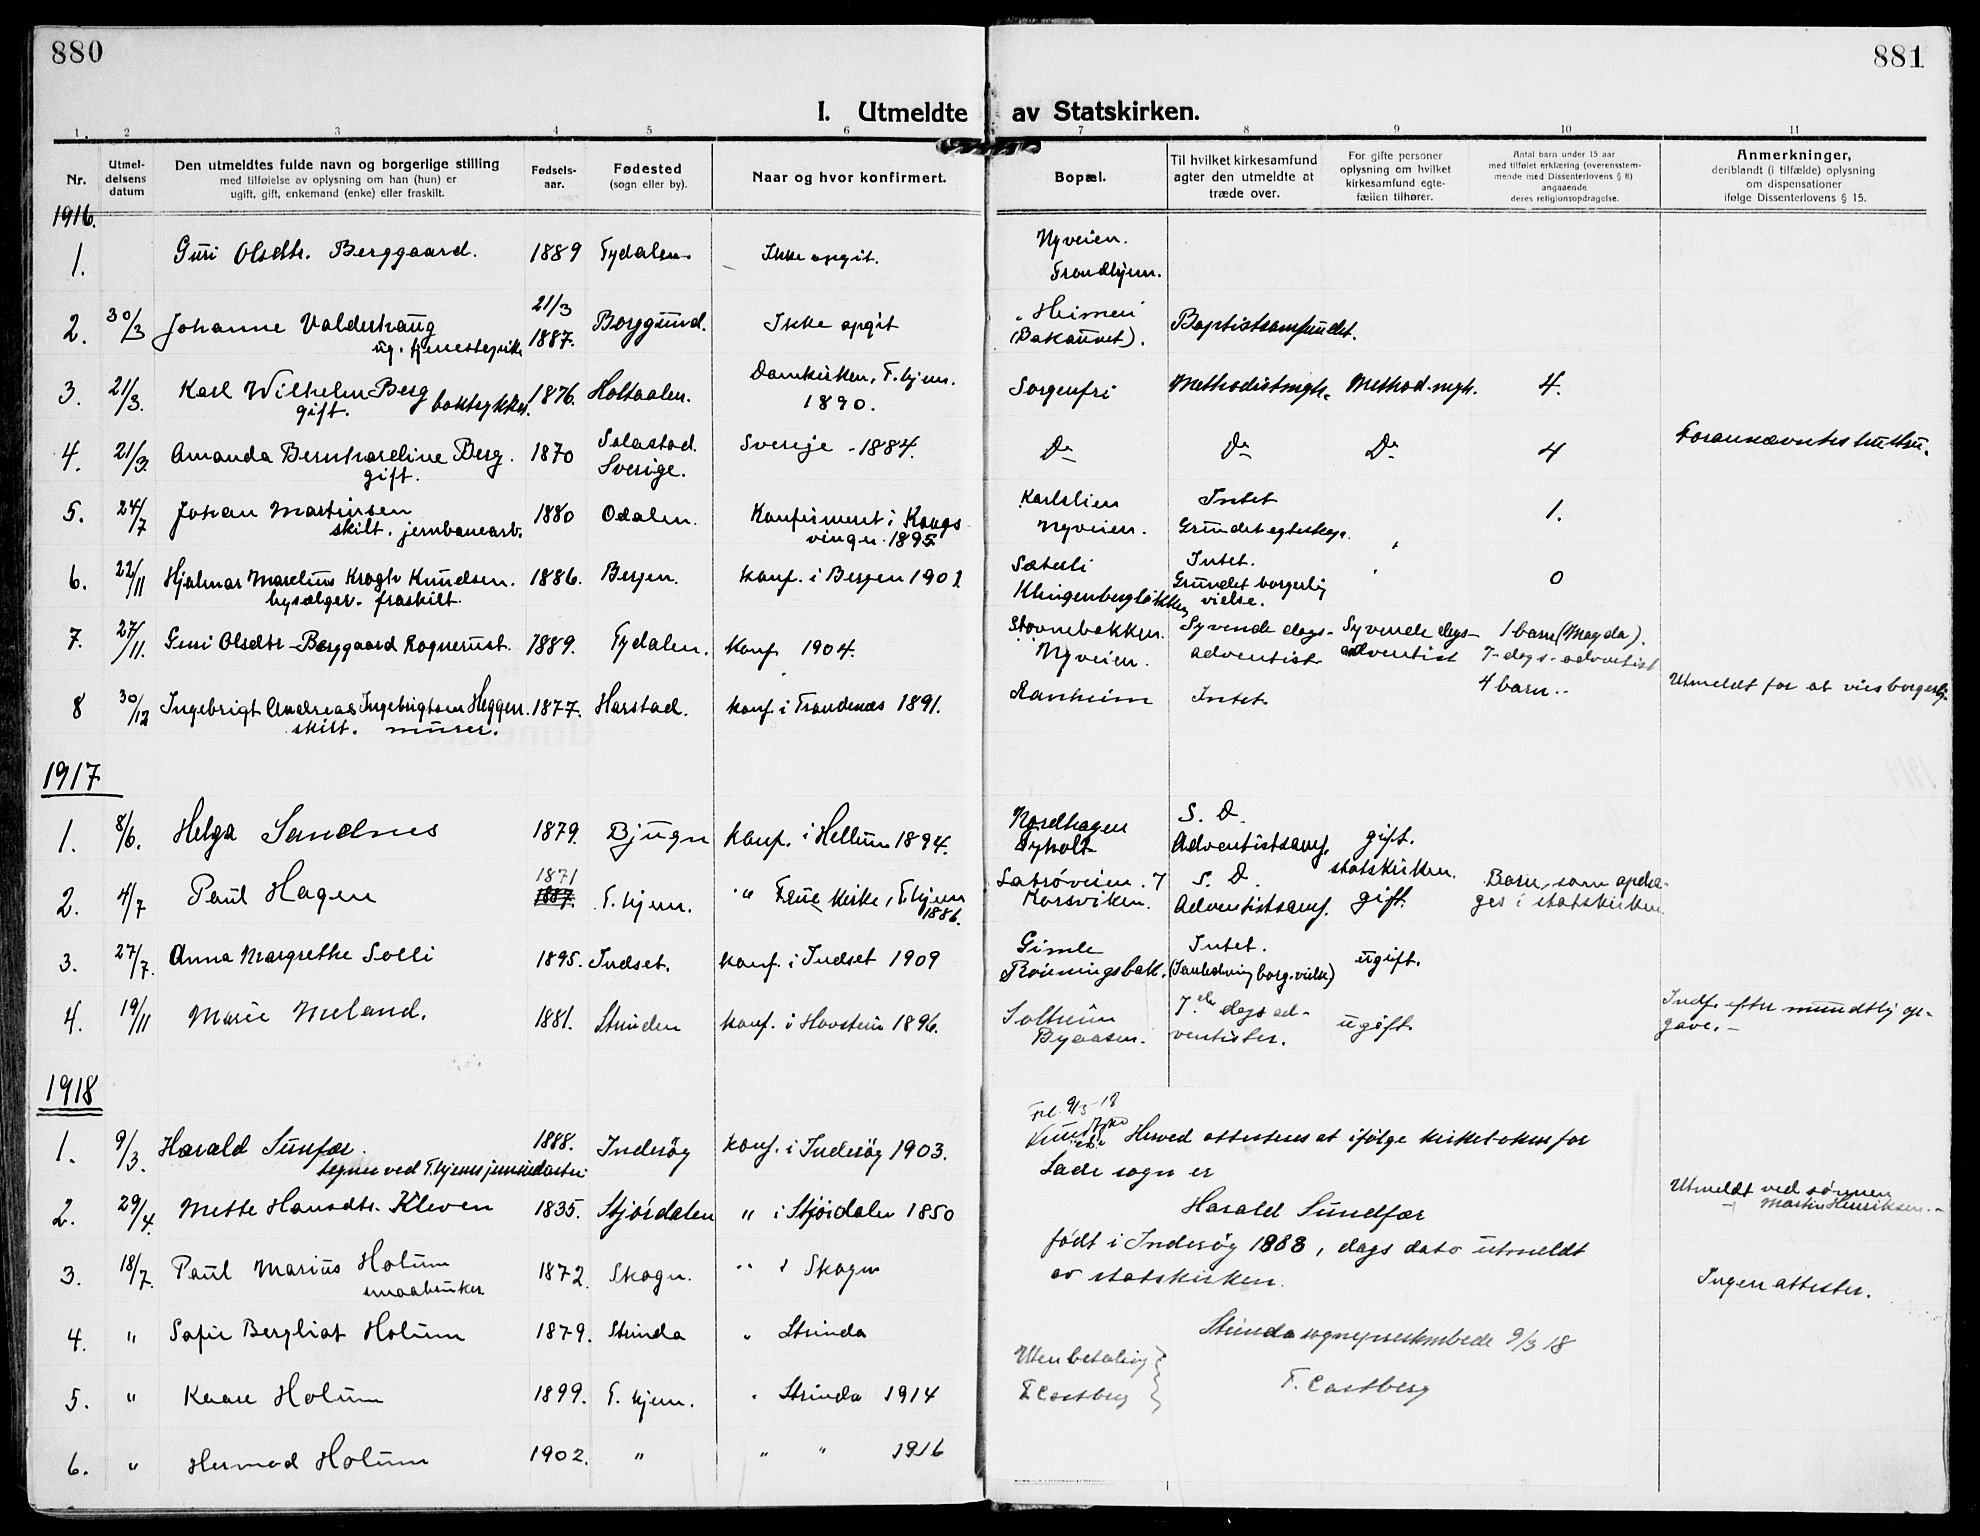 880
881
I. Utmeldte av Statskirken.
1. 2 3 4 5 6 7 8 9 10 11
Nr.
Utmel-
delsens
datum
Den utmeldtes fulde navn og borgerlige stilling
med tilføielse av oplysning om han (hun) er
ugift, gift, enkemand (enke) eller fraskilt.
Fødsels-
aar.
Fødested
(sogn eller by).
Naar og hvor konfirmert.
Bopæl.
Til hvilket kirkesamfund
agter den utmeldte at
træde over.
For gifte personer
oplysning om hvilket
kirkesamfund egte-
fællen tilhører.
Antal barn under 15 aar
med tilføiet erklæring (overensstem-
mende med Dissenterlovens § 8)
angaaende
deres religionsopdragelse.
Anmerkninger,
deriblandt (i tilfælde) oplysning
om dispensationer
ifølge Dissenterlovens § 15.
1916.
1. Guri Olsdtr. Berggaard. 1889 Tydalen. Ikke opgit. Nyveien.
Trondhjem.
2. 30/3 Johanne Valderhaug 21/3 1887. Borgund. Ikke opgit Heimen (Bakaunet). Baptistsamfundet.
ug. tjenestepike
3. 21/3. Karl Wilhelm Berg 1876. Holtaalen. Domkirken, T.hjem. 1890. Sorgenfri Methodistmgh. Method.mgh. 4.
gift.
4. 21/3. Amanda Bernhardine Berg. 1870 Sverige. Sverige - 1884. Do Do Do 4 Forannævntes hustru.
gift.
5. 24/7 Johan Martinsen 1880 Odalen. Konfirmert i Kongs-
vinger 1895. Karlslien
Nyveien. Intet
Grundet egteskap. 1.
skilt. jernbanearb.
6. 22/11 Hjalmar Marelius Krogh Knudsen. 1886. Bergen. konf. i Bergen 1901 Sæterli
Klingenbergløkken Intet.
Grundet borgerlig
vielse. 0
fraskilt.
7. 27/11. Guri Olsdtr Berggaard Rognerust. 1889. Tydalen. konf. 1904. Stovnebakken.
Nyveien. Syvende dags-
adventist Syvende dags-
adventist 1 barn (Magda).
7-dags-adventist
8 30/12 Ingebrigt Andreas Ingebrigtsen Heggen. 1877. Harstad. konf. i Trondenes 1891. Ranheim Intet. 4 barn.. Utmeldt for at vies borgerlig.
skilt. murer.
1917
1. 8/6. Helga Sandnes 1879. Bjugn konf. i Hellum 1894. Nordhagen
Tyholt S. D.
Adventistsamf. gift.
statskirken.
2. 4/7 Paul Hagen 1871 1887. T.hjem. " Frue kirke, T.hjem 1886. Ladrøveien. 7
Korsviken. S. D.
Adventistsamf. gift. Barn, som opdra-
ges i statskirken.
3. 27/7. Anna Margrethe Solli 1895. Indset. konf. i Indset 1909 Gimle
Rønningsbak. Intet.
(I anledning borg. vielse) ugift.
4. 19/11 Marie Meland. 1881. Strinden konf. i Hovstein 1896. Solheim
Byaasen. 7.de dags ad-
ventister. ugift. Indf. efter mundtlig op-
gave.-
1918
1. 9/3. Harald Sunfær. 1888. Inderøy konf. i Inderøy 1903.
tegner ved T.hjems
2. 29/4. Mette Hansdtr. Kleven 1835. Stjørdalen " i Stjørdalen 1850 Utmeldt ved sønnen
Martin Henriksen.-
3. 18/7. Paul Marius Holum 1872. Skogn. " i Skogn Ingen attester.
smaabruker
4. " Sofie Bergliot Holum 1879. Strinda " Strinda
5. " Kaare Holum 1899. T.hjem. " Strinda 1914
6. " Hermod Holum 1902. " " " 1916
9/3-18
Herved attesteres at ifølge kirkebøkene for
Lade sogn er
Harald Sundfær
født i Inderøy 1888, dags dato utmeldt
av statskirken.
Strinda sogneprestembede 9/3 18
F. Castberg
Uten betaling
F. Castberg